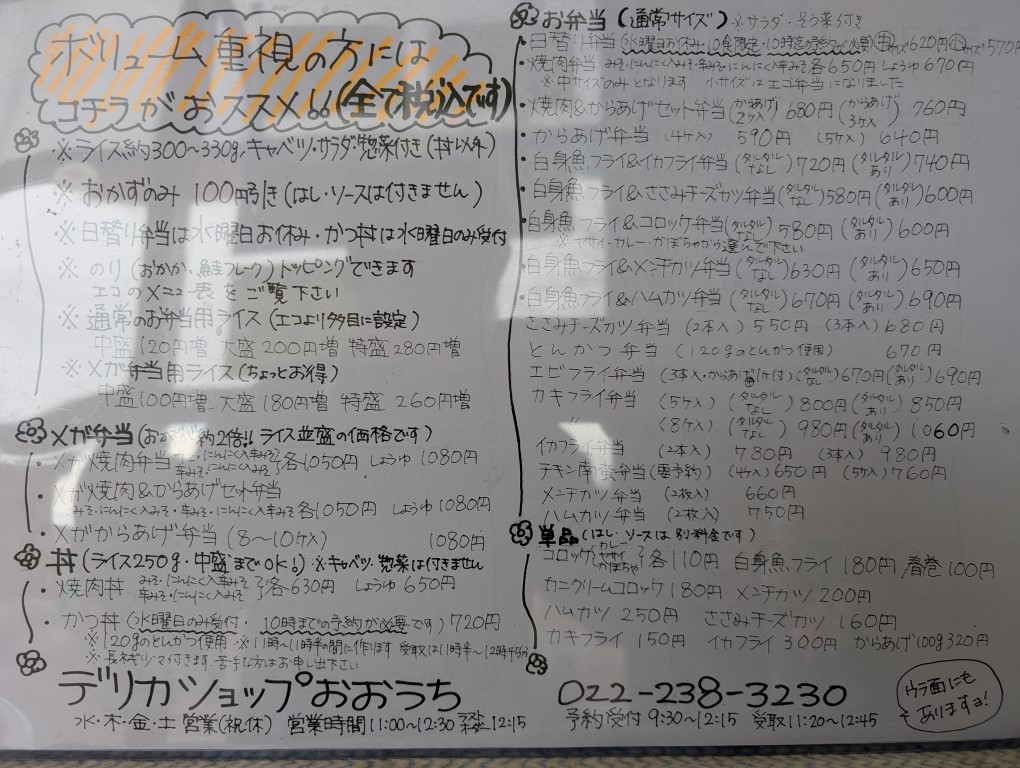 ボリューム重視の方には
コチラがおススメ!!(全て税込です)
※ライス約300〜330g、キャベツ・サラダ・惣菜付き(丼以外)
※おかずのみ 100円引き(はし・ソースは付きません)
※日替り弁当は水曜日お休み・かつ丼は水曜日のみ受付
※のり(おかか・鮭フレーク)トッピングできます
エコのメニュー表をご覧下さい
※通常のお弁当用ライス(エコより多目に設定)
中盛120円増 大盛200円増 特盛280円増
※メガ弁当用ライス(ちょっとお得)
中盛100円増 大盛180円増 特盛260円増
メガ弁当(おかず約2倍!!ライス並盛の価格です)
・メガ焼肉弁当 みそ・にんにく入みそ 辛みそ・にんにく入辛みそ 各1050円 しょうゆ1080円
・メガ焼肉&からあげセット弁当
みそ・にんにく入みそ・辛みそ・にんにく入辛みそ各1050円 しょうゆ1080円
・メガからあげ弁当(8〜10ケ入) 1080円
丼(ライス250g・中盛までOK!)※キャベツ・惣菜は付きません
・焼肉丼 みそ・にんにく入みそ 辛みそ・にんにく入辛みそ 各630円 しょうゆ650円
・かつ丼(水曜日のみ受付・10時までの予約が必要です)720円
※120gのとんかつ使用 ※11時〜11時半の間に作ります 受取は11時半〜12時45分
※長ネギ・ノリ付きます。苦手な方はお申し出下さい
お弁当(通常サイズ)※サラダ・そう菜付き
・日替り弁当(水曜日お休み・10食限定・10時迄の予約が必要)中サイズ620円 小サイズ570円
・焼肉弁当 みそ・にんにく入みそ・辛みそ・にんにく入辛みそ各650円 しょうゆ670円
※中サイズのみとなります 小サイズはエコ弁当になりました
・焼肉&からあげセット弁当(からあげ2ケ入)680円(からあげ3ケ入)760円
・からあげ弁当(4ケ入)590円(5ケ入)640円
・白身魚フライ&イカフライ弁当(タルタルなし)720円(タルタルあり)740円
・白身魚フライ&ささみチーズカツ弁当(タルタルなし)580円(タルタルあり)600円
・白身魚フライ&コロッケ弁当(タルタルなし)580円(タルタルあり)600円
※ヤサイ・カレー・かぼちゃから選んで下さい
・白身魚フライ&メンチカツ弁当(タルタルなし)630円(タルタルあり)650円
・白身魚フライ&ハムカツ弁当(タルタルなし)670円(タルタルあり)690円
ささみチーズカツ弁当(2本入)550円(3本入)680円
とんかつ弁当(120gのとんかつ使用)670円
エビフライ弁当(3本入・からあげ1ケ付)(タルタルなし)670円(タルタルあり)690円
カキフライ弁当(5ケ入)(タルタルなし)800円(タルタルあり)850円
〃(8ケ入)(タルタルなし)980円(タルタルあり)1060円
イカフライ弁当(2本入)780円(3本入)980円
チキン南蛮弁当(要予約)(4ケ入)650円(5ケ入)760円
メンチカツ弁当(2枚入)660円
ハムカツ弁当(2枚入)750円
単品(はし・ソースは別料金です)
コロッケ(カレー ヤサイ かぼちゃ)各110円 白身魚フライ180円 春巻100円
カニクリームコロッケ180円 メンチカツ200円
ハムカツ250円 ささみチーズカツ160円
カキフライ150円 イカフライ300円 からあげ100g320円
デリカショップおおうち
水・木・金・土 営業(祝休) 営業時間11:00〜12:30 12:15
022-238-3230
予約受付9:30〜12:15 受取11:20〜12:45
ウラ面にもありますヨ!